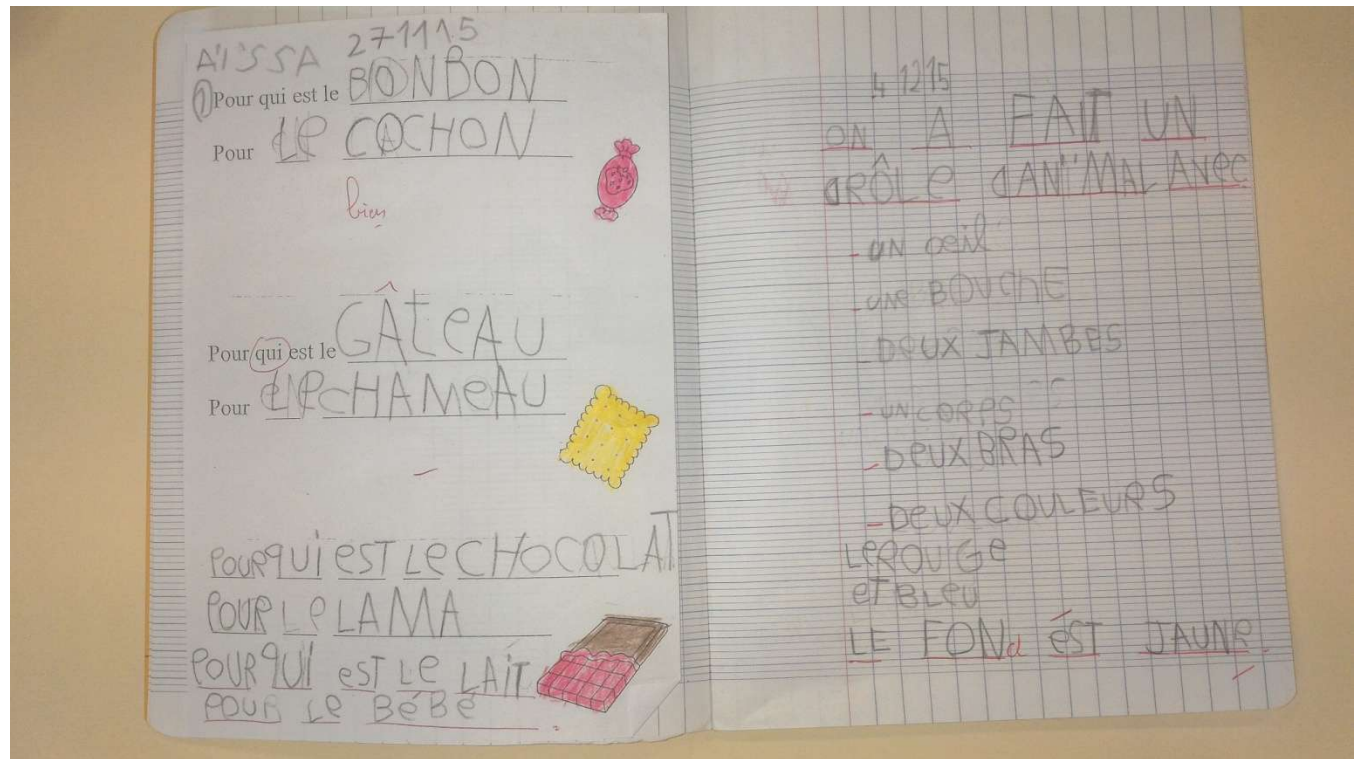 AÏSSA 271115
① Pour qui est le BONBON
Pour LE COCHON
bien
Pour qui est le GÂteAU
Pour Le CHAMeAU
POUR QUI eST Le CHOCOLAT
POUR Le LAMA
POUR QUI eST Le LAiT
POUR Le BéBé.
4 12 15
ON A FAIT UN
dRÔLe dANiMAL AVeC
- uN oeil
- une BOUChE
- DeUX JAMBES
- UN CORPS
- DeUX BRAS
- DeUX COULEURS
Le ROUGe
eT BLeU
LE FONd éST JAUNe.